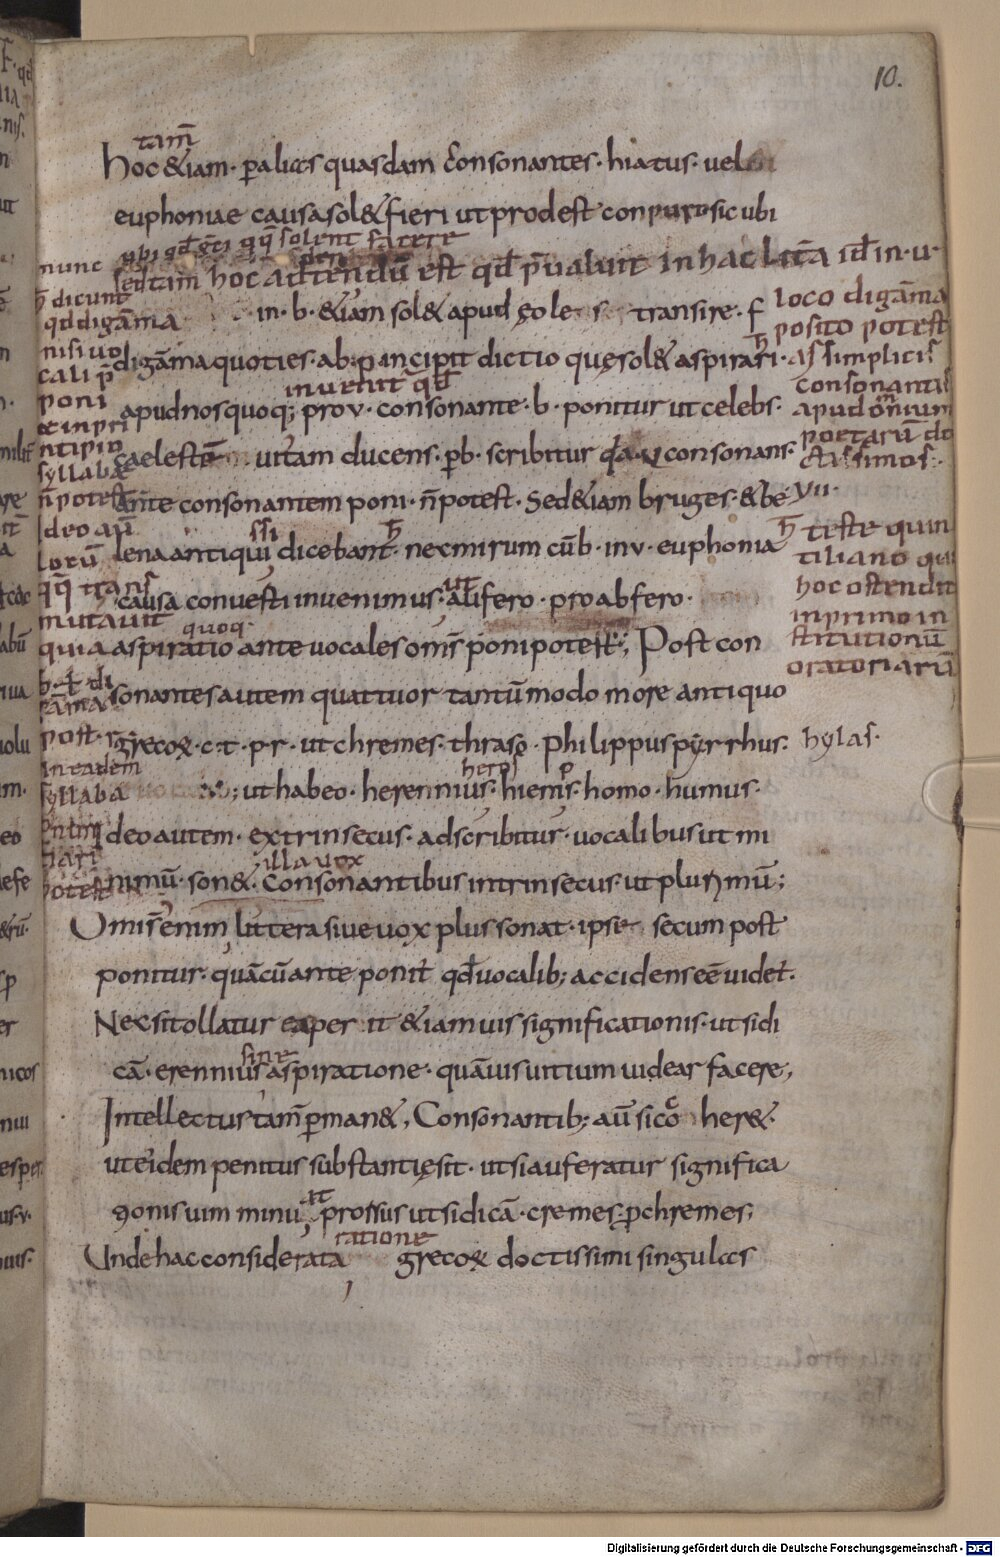 10.
tam̄
hoc &iam· ꝑ alias quasdam consonantes· hiatus· uel
euphoniae causa sol& fieri ut prodest con puro sic ubi
ubi qđ g̅ci qq̄ solent facere
sed tam hoc adtendū est qđ p̄ualuit in hac litt̄a id in· u·
in· b· &iam sol& apud ęole s transire· f
digāma quoties· ab· p incipit dictio quę sol& aspirari·
inuenit qđ
apud nos quoq; pro v· consonante· b· ponitur ut celebs·
caelestiū uitam ducens· ꝑ b· scribitur qđ a· u consonans·
ante consonantem poni· n̄ potest· Sed &iam bruges· & be
ssi
lena antiqui dicebant· nec mirum cū b· in v· euphonia
ut
causa conuerti inuenimus· alifero· pro abfero·
quoq·
aspiratio ante uocales om̄s poni potest; Post con
sonantes autem quattuor tantūmodo more antiquo
grecoꝝ· c· t· p· r· ut chremes· thraso· philippus pyrrhus·
heros
ut habeo· herennius· hiems· homo· humus·
deo autem· extrinsecus· adscribitur· uocalibus ut mi
illa uox
nimū· son&· Consonantibus intrinsecus· ut plurimū;
Omīs enim littera siue uox plus sonat· ipse secum post
ponitur· quācū ante ponit̄ qđ uocalib; accidens eē uidet̄·
Nec si tollatur ea perit &iam uis significationis· ut si di
sine
cā· erennius aspiratione· quāuis uitium uidear facere;
Intellectus tam̄ ꝑman&, Consonantib; aū sic coher&·
ut eidem penitus substantię sit· ut si auferatur significa
at
tionis uim minu prorsus ut si dicā· cremes· ꝑ chremes;
ratione
Unde hac considerata grecoꝝ doctissimi singulas
nunc
h̄ dicunt
qđ digāma
nisi uo
cali p̄
poni
et in pri
ntipio
syllabę
n̄ potest
Ideo
locū
qq̄ trans
mutauit
quia
b· ł di
gāma
post·
in eadem
syllaba
potest
loco digāma
posito potest
as simplicis
consonantis
apud omnium
poetarū do
ctissimos·
VII·
teste quin
tiliano qui
hoc ostendit
in primo in
stitutionū
oratoriarū
hylas·
Digitalisierung gefördert durch die Deutsche Forschungsgemeinschaft · DFG